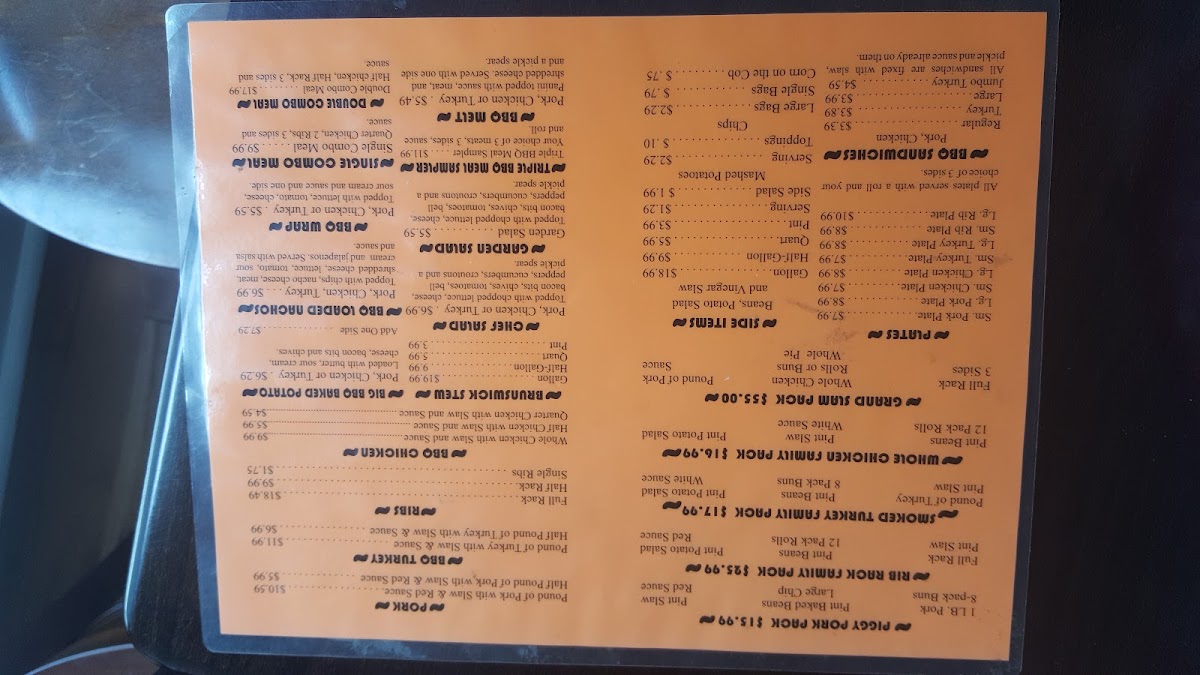 PIGGY PORK PACK $15.99
1 LB. Pork Pint Baked Beans Pint Slaw
8-pack Buns Large Chip Red Sauce
RIB RACK FAMILY PACK $25.99
Full Rack Pint Beans Pint Potato Salad
Pint Slaw 12 Pack Rolls Red Sauce
SMOKED TURKEY FAMILY PACK $17.99
Pound of Turkey Pint Beans Pint Potato Salad
Pint Slaw 8 Pack Buns White Sauce
WHOLE CHICKEN FAMILY PACK $16.99
Pint Beans Pint Slaw Pint Potato Salad
12 Pack Rolls White Sauce
GRAND SLAM PACK $55.00
Full Rack Whole Chicken Pound of Pork
3 Sides Rolls or Buns Sauce
Whole Pie
PLATES
Sm. Pork Plate $7.99
Lg. Pork Plate $8.99
Sm. Chicken Plate $7.99
Lg. Chicken Plate $8.99
Sm. Turkey-Plate $7.99
Lg. Turkey Plate $8.99
Sm. Rib Plate $8.99
Lg. Rib Plate $10.99
All plates served with a roll and your
choice of 3 sides.
BBQ SANDWICHES
Pork, Chicken
Regular $3.39
Turkey $3.89
Large $3.99
Jumbo Turkey $4.59
All sandwiches are fixed with, slaw,
pickle and sauce already on them.
SIDE ITEMS
Beans, Potato Salad
and Vinegar Slaw
Gallon $18.99
Half-Gallon $9.99
Quart $5.99
Pint $3.99
Serving $1.29
Side Salad $1.99
Mashed Potatoes
Serving $2.29
Toppings $.10
Chips
Large Bags $2.29
Single Bags $.79
Corn on the Cob $.75
PORK
Pound of Pork with Slaw & Red Sauce $10.59
Half Pound of Pork with Slaw & Red Sauce $5.99
BBQ TURKEY
Pound of Turkey with Slaw & Sauce $11.99
Half Pound of Turkey with Slaw & Sauce $6.99
RIBS
Full Rack $18.49
Half Rack $9.99
Single Ribs $1.75
BBQ CHICKEN
Whole Chicken with Slaw and Sauce $9.99
Half Chicken with Slaw and Sauce $5.99
Quarter Chicken with Slaw and Sauce $4.59
BRUNSWICK STEW
Gallon $19.99
Half-Gallon 9.99
Quart 5.99
Pint 3.99
CHEF SALAD
Pork, Chicken or Turkey $6.99
Topped with chopped lettuce, cheese,
bacon bits, chives, tomatoes, bell
peppers, cucumbers, croutons and a
pickle spear.
GARDEN SALAD
Garden Salad $5.59
Topped with chopped lettuce, cheese,
bacon bits, chives, tomatoes, bell
peppers, cucumbers, croutons and a
pickle spear.
TRIPLE BBQ MEAL SAMPLER
Triple BBQ Meal Sampler $11.99
Your choice of 3 meats, 3 sides, sauce
and roll.
BBQ MELT
Pork, Chicken or Turkey $5.49
Panini topped with sauce, meat, and
shredded cheese. Served with one side
and a pickle spear.
BIG BBQ BAKED POTATO
Pork, Chicken or Turkey $6.29
Loaded with butter, sour cream,
cheese, bacon bits and chives.
Add One Side $7.29
BBQ LOADED NACHOS
Pork, Chicken, Turkey $6.99
Topped with chips, nacho cheese, meat,
shredded cheese, lettuce, tomato, sour
cream and jalapenos. Served with salsa
and sauce.
BBQ WRAP
Pork, Chicken or Turkey $5.59
Topped with lettuce, tomato, cheese,
sour cream and sauce and one side.
SINGLE COMBO MEAL
Single Combo Meal $9.99
Quarter Chicken, 2 Ribs, 3 sides and
sauce.
DOUBLE COMBO MEAL
Double Combo Meal $17.99
Half Chicken, Half Rack, 3 sides and
sauce.